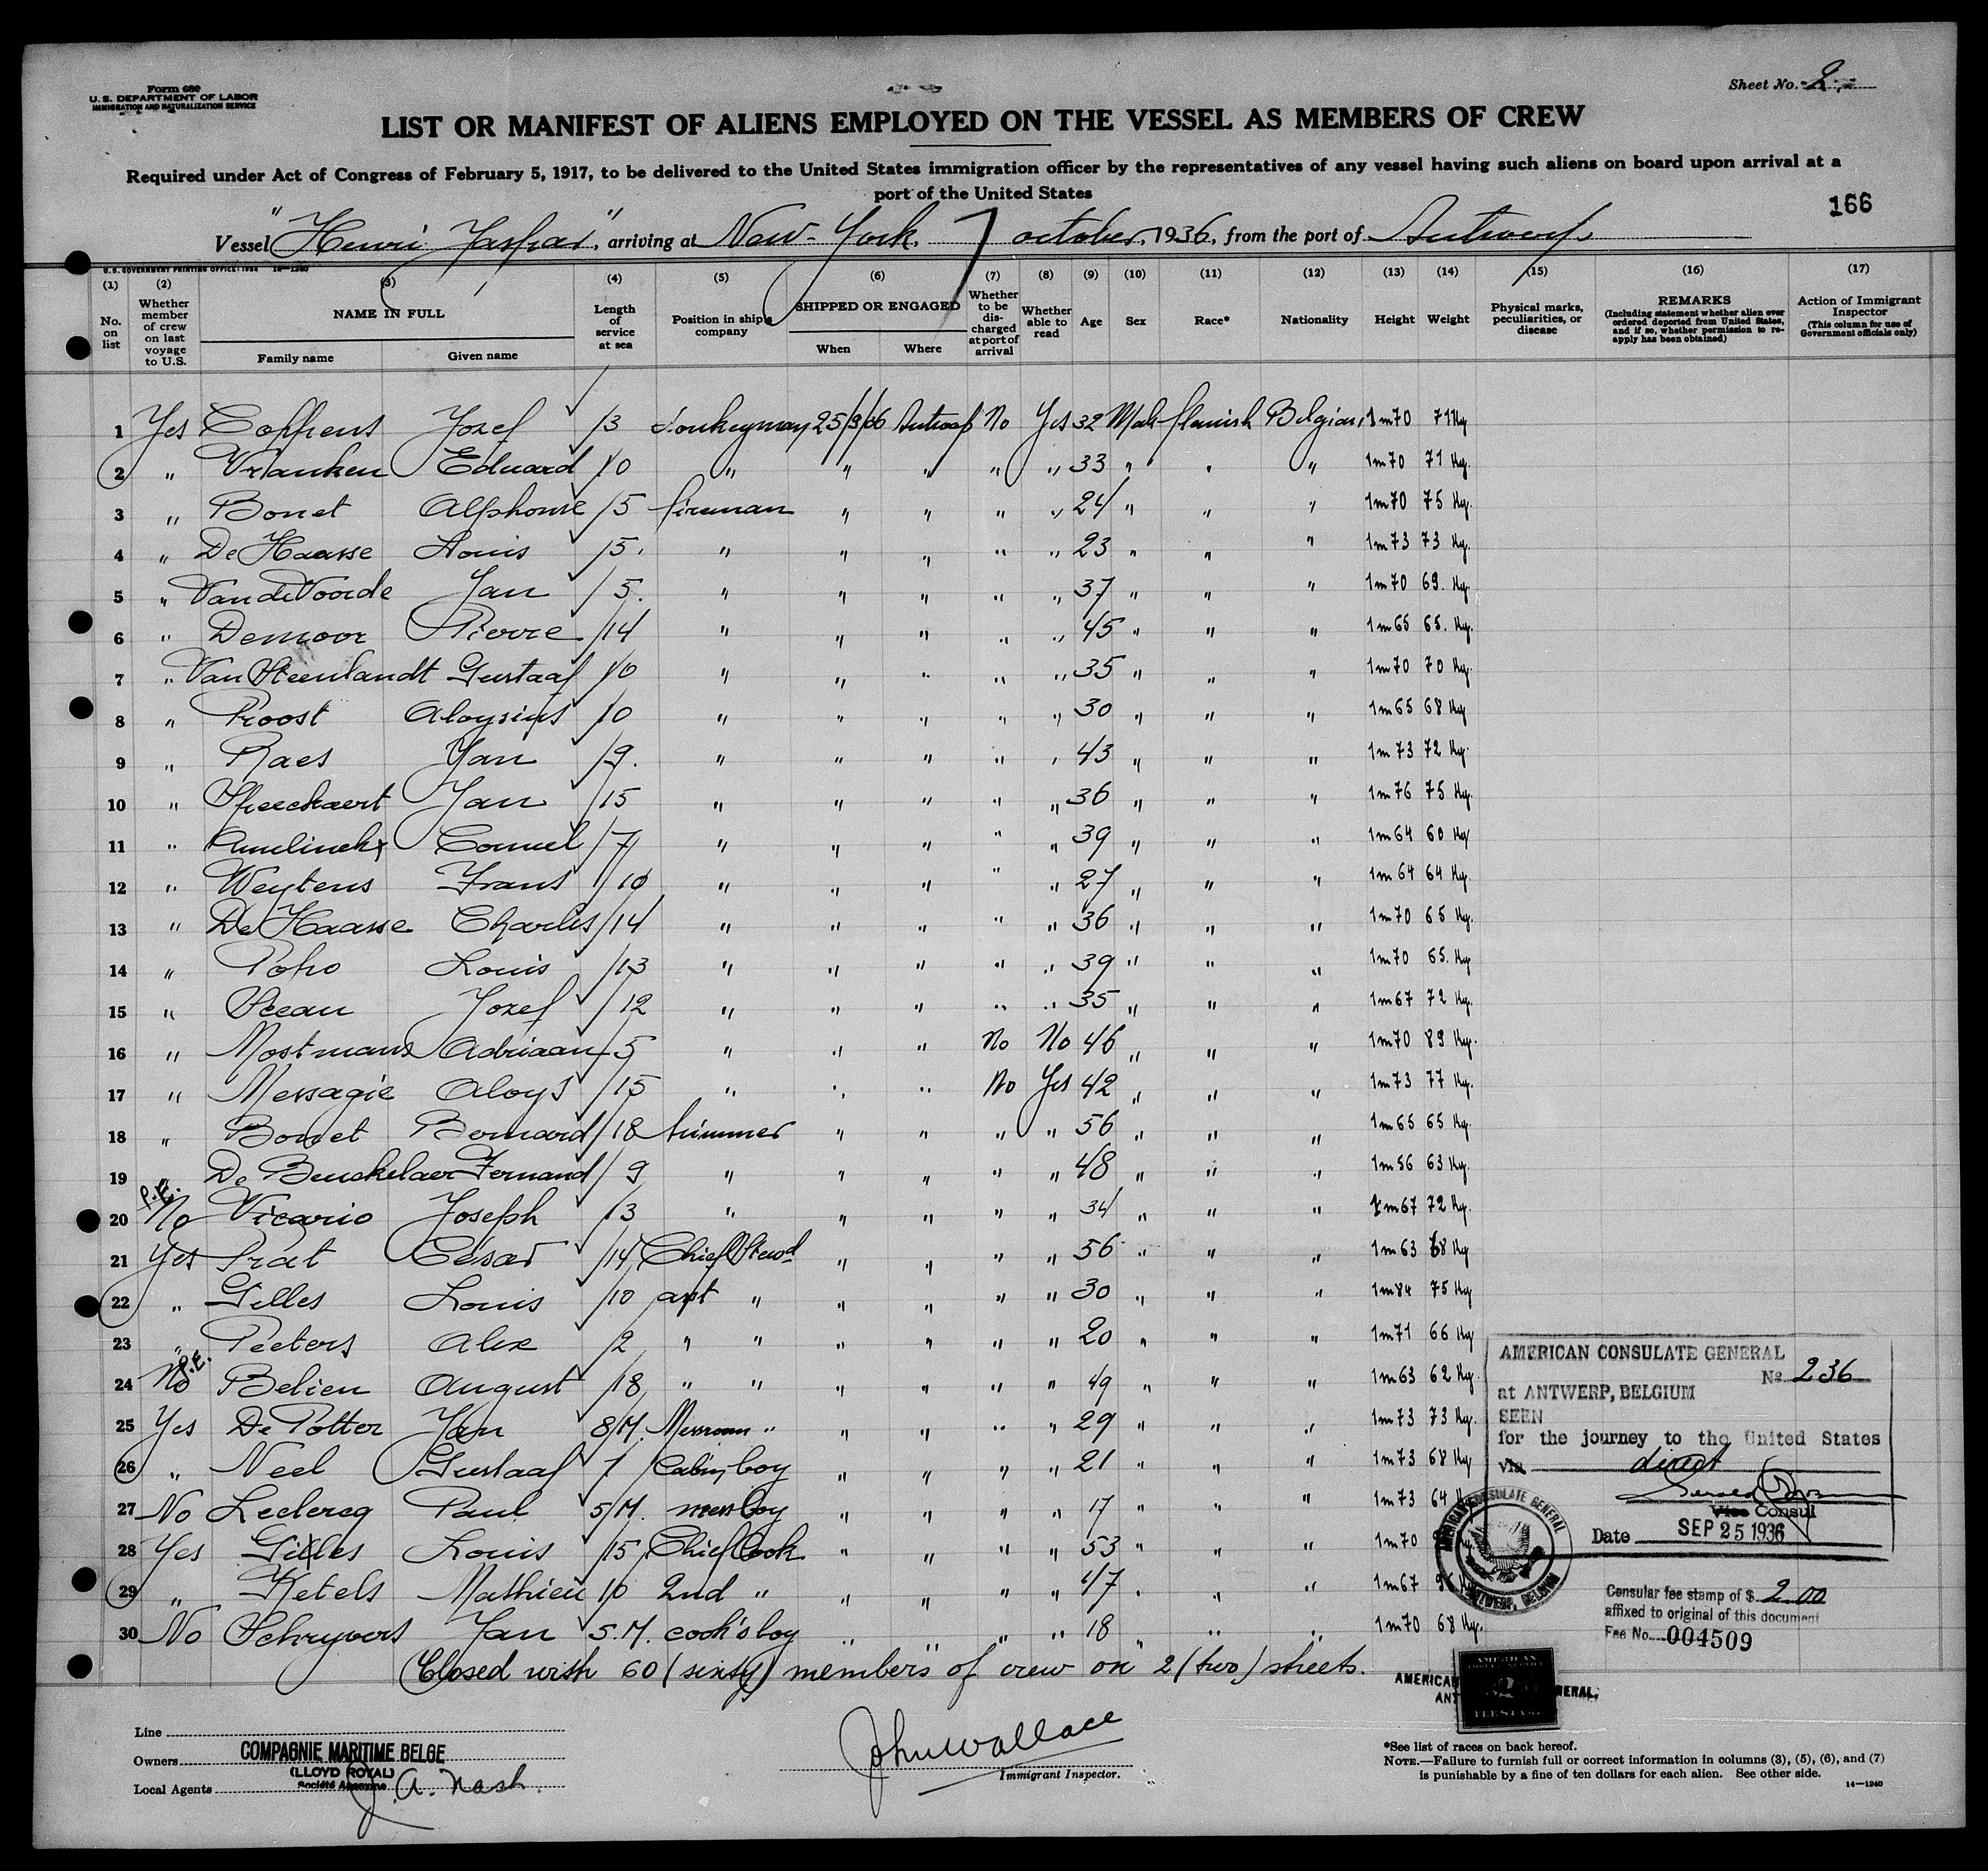 Form 680
U.S. DEPARTMENT OF LABOR
IMMIGRATION AND NATURALIZATION SERVICE
Sheet No. 2
LIST OR MANIFEST OF ALIENS EMPLOYED ON THE VESSEL AS MEMBERS OF CREW
Required under Act of Congress of February 5, 1917, to be delivered to the United States immigration officer by the representatives of any vessel having such aliens on board upon arrival at a
port of the United States
166
Vessel "Henri Jaspar", arriving at New-York. 7 october, 1936, from the port of Antwerp
U.S. GOVERNMENT PRINTING OFFICE: 1934 14—1240
(1) (2) (3) (4) (5) (6) (7) (8) (9) (10) (11) (12) (13) (14) (15) (16) (17)
No. on list
Whether member of crew on last voyage to U.S.
NAME IN FULL
Family name Given name
Length of service at sea
Position in ship's company
SHIPPED OR ENGAGED
When Where
Whether to be discharged at port of arrival
Whether able to read
Age Sex Race* Nationality Height Weight
Physical marks, peculiarities, or disease
REMARKS
(Including statement whether alien ever ordered deported from United States, and if so, whether permission to reapply has been obtained)
Action of Immigrant Inspector
(This column for use of Government officials only)
1 Yes Coppens Jozef 13 donkeyman 25/9/36 Antwerp No Yes 32 Male flemish Belgian 1m70 71 Kg
2 " Vrlanken Eduard 10 " " " " " 33 " " " 1m70 71 Kg.
3 " Bonet Alphonse 15 fireman " " " " 24 " " " 1m70 75 Kg.
4 " De Haasse Louis 5. " " " " " 23 " " " 1m73 73 Kg.
5 " Van de Voorde Jan 5. " " " " " 37 " " " 1m70 69. Kg.
6 " Demoor Pierre 14 " " " " " 45 " " " 1m65 65. Kg.
7 " Van Steenlandt Gustaaf 10 " " " " " 35 " " " 1m70 70 Kg
8 " Proost Aloysius 10 " " " " " 30 " " " 1m65 68 Kg
9 " Raes Jan 9. " " " " " 43 " " " 1m73 72 Kg.
10 " Speeckaert Jan 15 " " " " " 36 " " " 1m76 75 Kg.
11 " Amelinckx Cornuel 7 " " " " " 39 " " " 1m64 60 Kg
12 " Weytens Frans 10 " " " " " 27 " " " 1m64 64 Kg.
13 " De Haasse Charles 14 " " " " " 36 " " " 1m70 65 Kg.
14 " Poho Louis 13 " " " " " 39 " " " 1m70 65. Kg
15 " Jozef 12 " " " " " 35 " " " 1m67 72 Kg.
16 " Mostmans Adriaan 5 " " " No No 46 " " " 1m70 89 Kg.
17 " Messagie Aloys 15 " " " No Yes 42 " " " 1m73 77 Kg.
18 " Bonet Bernard 18 trimmer " " " " 56 " " " 1m65 65 Kg.
19 " De Beuskelaer Fernand 9 " " " " " 48 " " " 1m56 63 Kg.
20 P.E. No Vicario Joseph 13 " " " " " 34 " " " 1m67 72 Kg.
21 Yes Prat César 14 Chief Stewd " " " " 56 " " " 1m63 68 Kg
22 " Gilles Louis 10 asst " " " " " 30 " " " 1m84 75 Kg
23 " Peeters Alex 2 " " " " " " 20 " " " 1m71 66 Kg
24 P.E. No Belien August 18 " " " " " " 49 " " " 1m63 62 Kg.
25 Yes De Potter Jan 8 M. Messroom " " " " " 29 " " " 1m73 73 Kg.
26 " Neel Gustaaf 7 Cabin boy " " " " 21 " " " 1m73 68 Kg
27 No Leclercq Paul 5 M. mess boy " " " " 17 " " " 1m73 64
28 Yes Gilles Louis 15 Chief Cook " " " " 53 " " " 1m70
29 " Ketels Mathieu 10 2nd " " " " " 47 " " " 1m67
30 No Schryvers Jan 5. M. cook's boy " " " " 18 " " " 1m70 68 Kg.
Closed with 60 (sixty) members of crew on 2 (two) sheets.
AMERICAN CONSULATE GENERAL
No. 236
at ANTWERP, BELGIUM
SEEN
for the journey to the United States
via direct
Vice Consul
Date SEP 25 1936
AMERICAN CONSULATE GENERAL
ANTWERP, BELGIUM
Consular fee stamp of $ 2.00
affixed to original of this document
Fee No. 004509
Line
Owners COMPAGNIE MARITIME BELGE
(LLOYD ROYAL)
Société Anonyme
Local Agents J. A. Nash.
John Wallace
Immigrant Inspector.
*See list of races on back hereof.
NOTE.—Failure to furnish full or correct information in columns (3), (5), (6), and (7)
is punishable by a fine of ten dollars for each alien. See other side.
14—1240